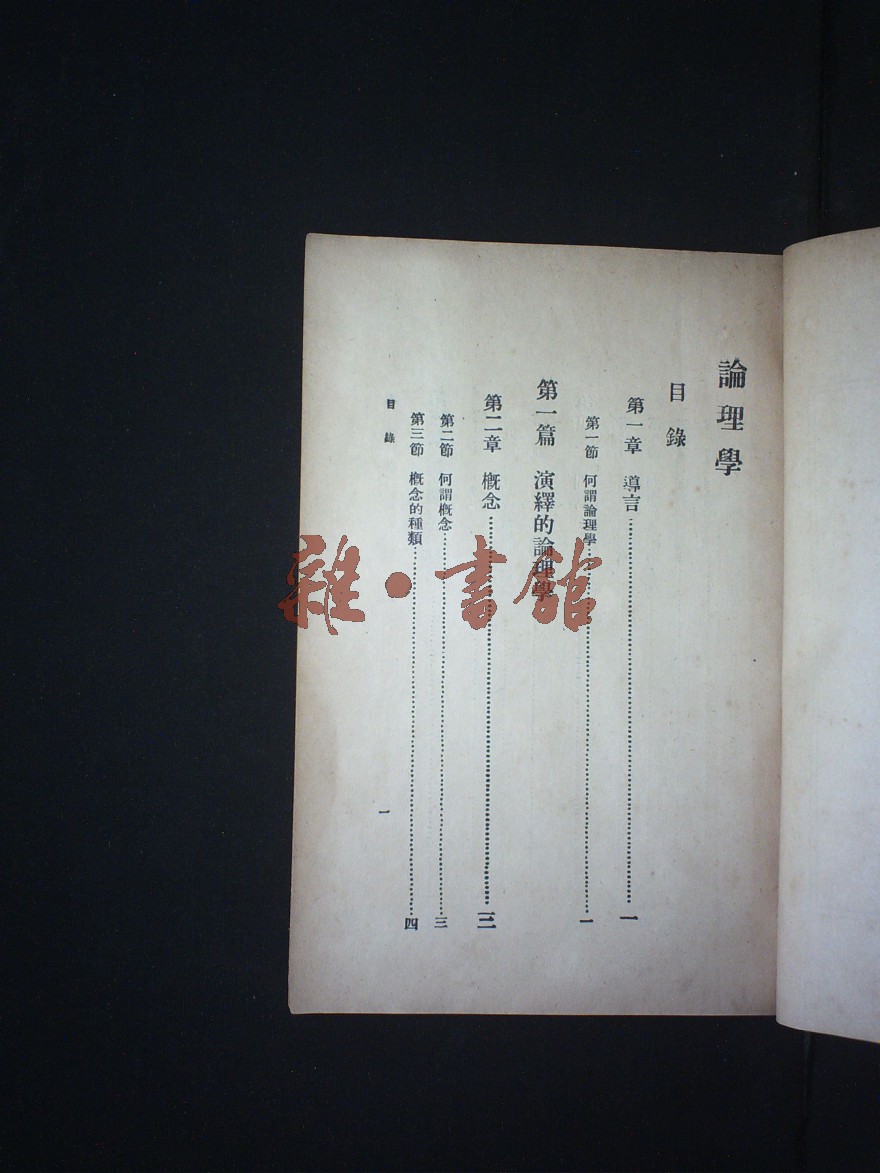 論理學
目錄
第一章 導言……………一
第一節 何謂論理學……………一
第一篇 演繹的論理學
第二章 概念……………三
第二節 何謂概念……………三
第三節 概念的種類……………四
目錄
一
雜·書館